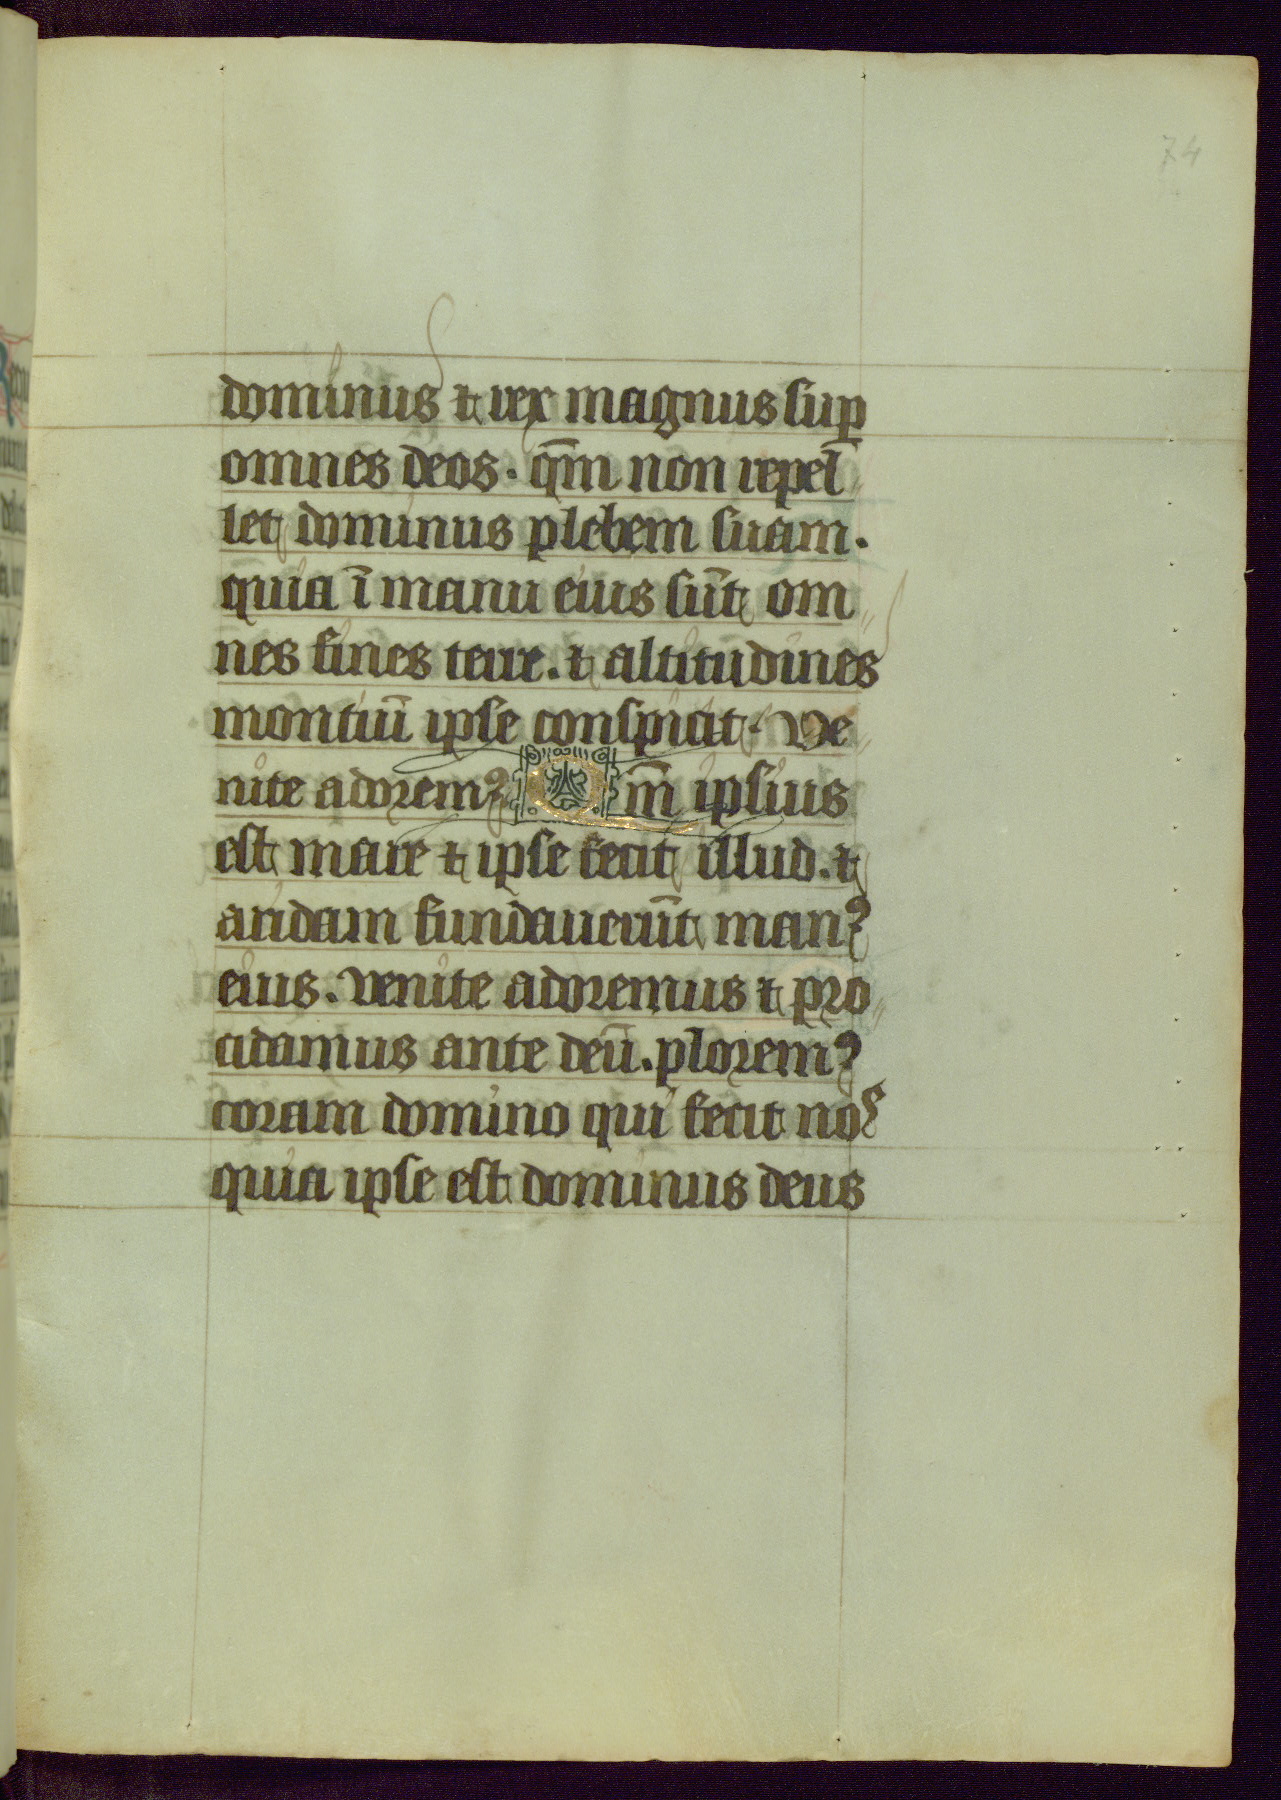 74
dominus & rex magnus sup̱
omnes deos. qm̄ non repel
let dominus plebem suam.
quia ī manu eius sūt om
nes fines terre. & altitudines
montiū ipse conspicit. Ve
nite adorem⁹ Qm̄ ipsius
est mare & ipse fecit illud. &
aridam fundauerūt man⁹
eius. venite adoremus & pro
cidamus ante deū. plorem⁹
coram domino qui fecit nos
quia ipse est dominus deus